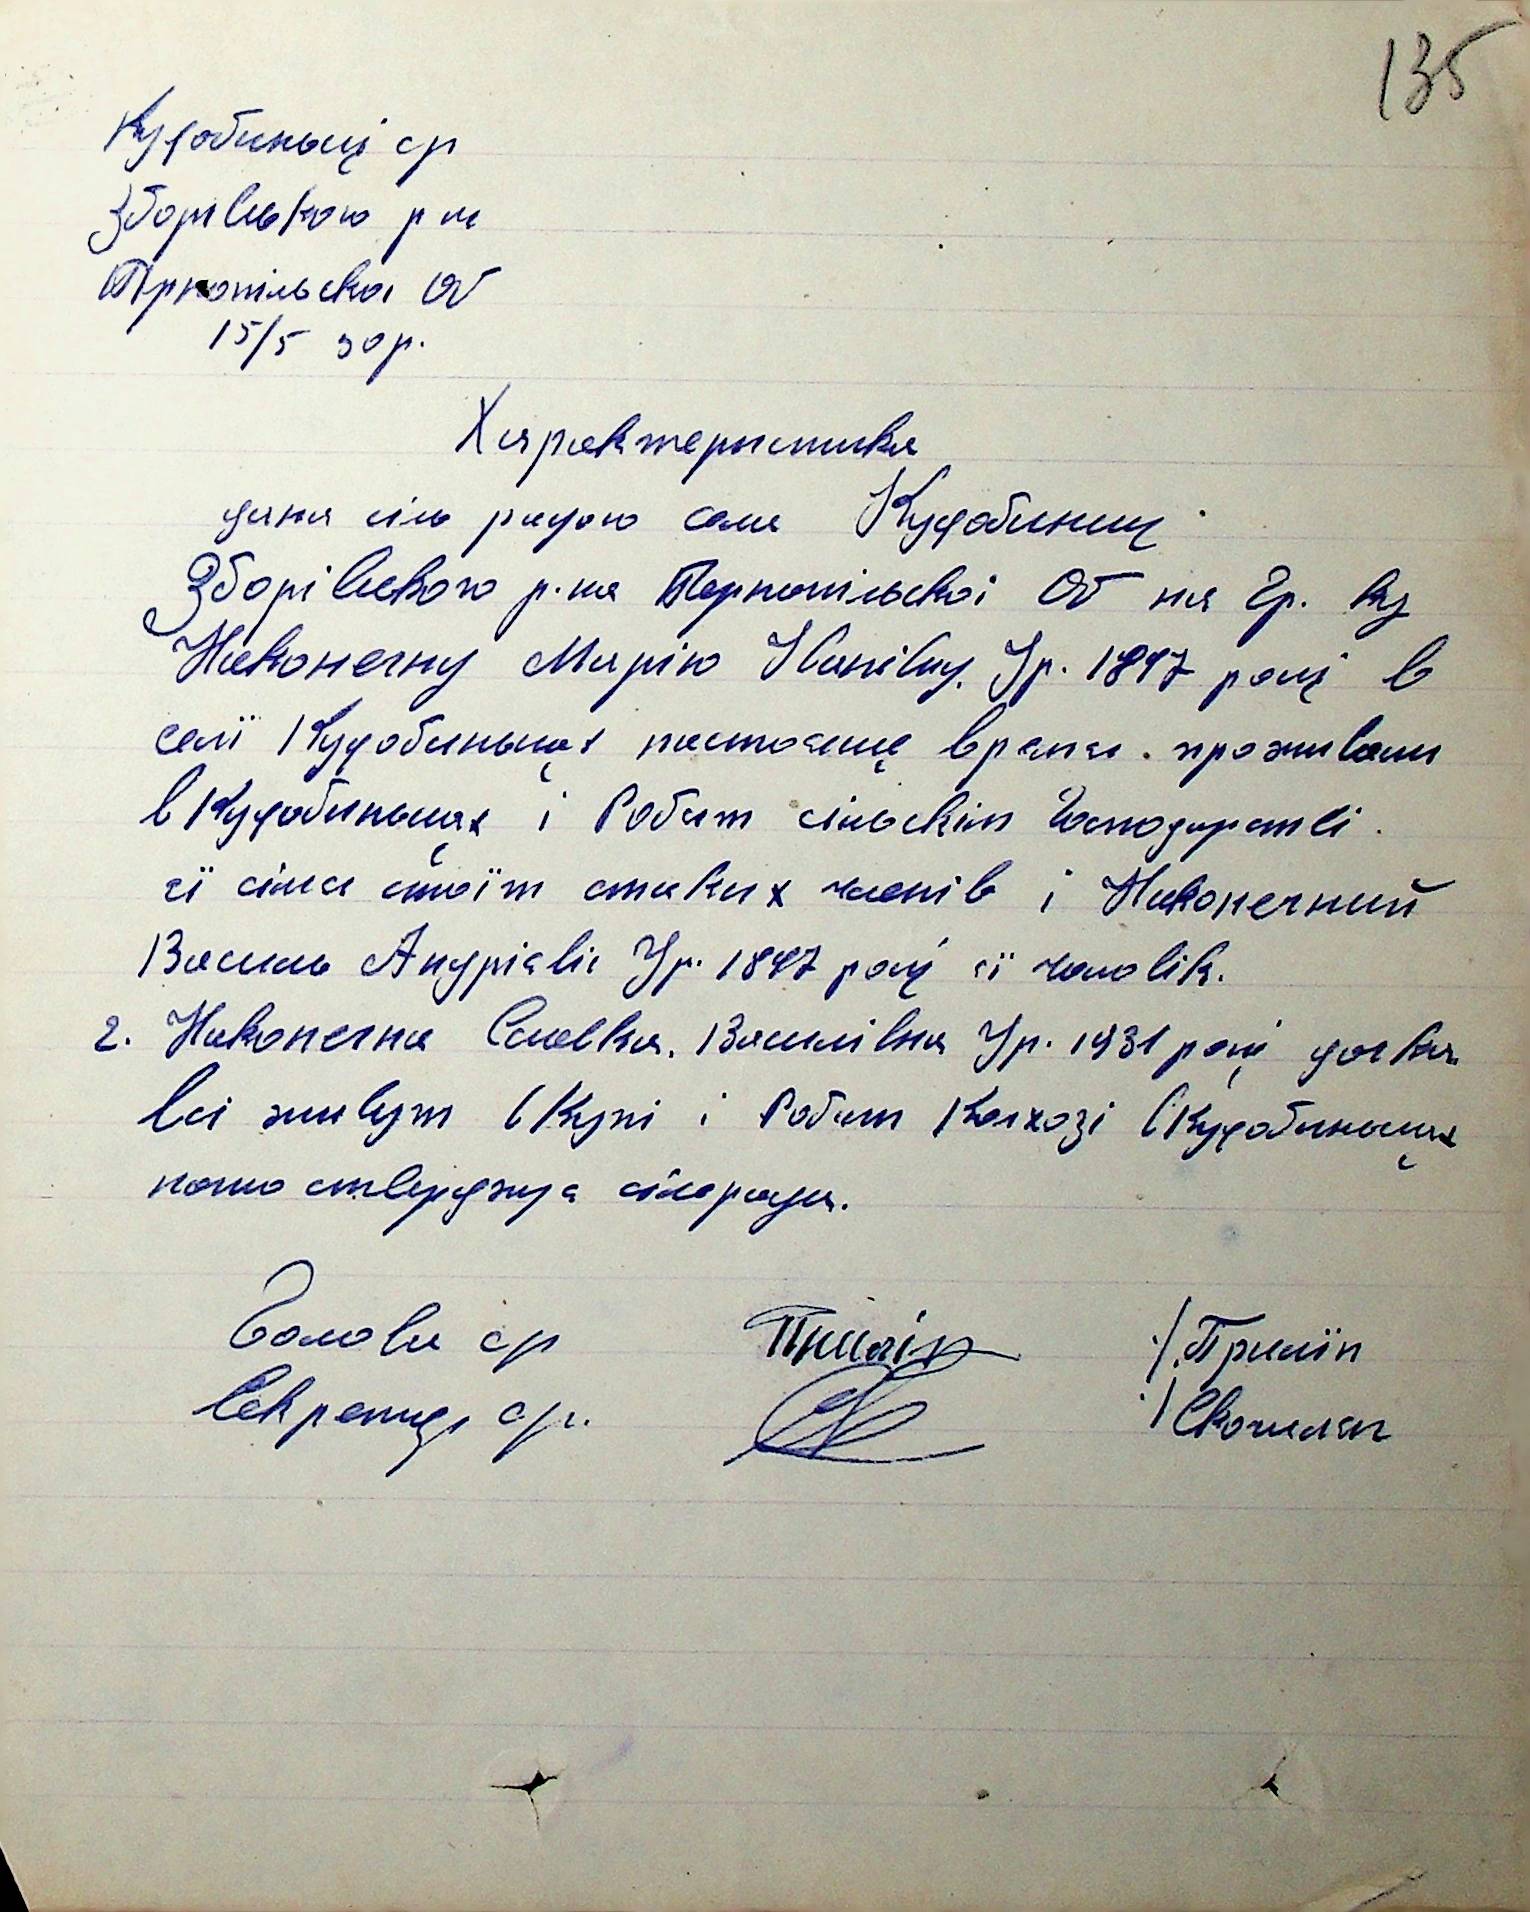 135
Кудобиньці ср
Зборівського р на
Тернопільскоі Об
15/5 50р.
Характеристика
дана сіль радою села Кудобинці
Зборівского р.на Тернопільскоі Об на Гр. ку
Наконечну Марію Иванівну. Ур. 1897 році в
селї Кудобиньцях настоящє время. проживаи
в Кудобиньцях і Робит сільскім Господарстві.
єї сімя стоїт стаких членів і Наконечний
Василь Андріевіч Ур. 1897 році єї чоловік.
2. Наконечна Славка. Василівна Ур. 1931 році дочка.
Всі живут в Купі і Робит Колхозі в Кудобиньцях
шо стверджує сільрада.
Голова ср /. Прилїп
Секретар ср. /